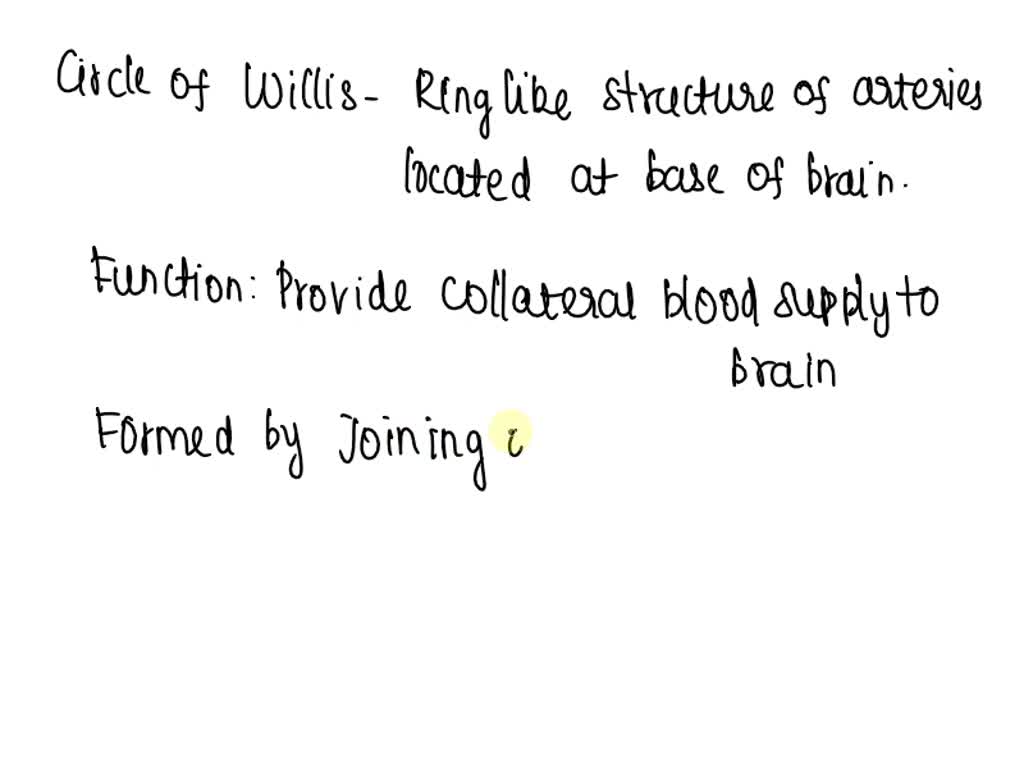 Circle of Willis - Ring like structure of arteries
located at base of brain.
Function: Provide collateral blood supply to
brain
Formed by Joining